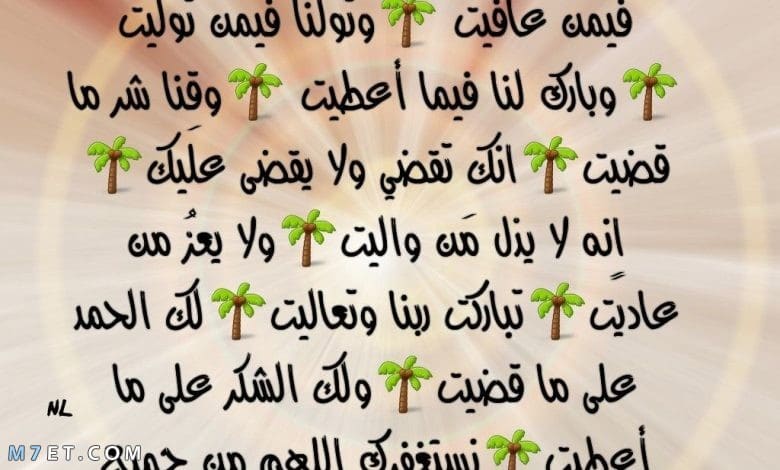 فيمن عافيت 🌴 وتولنا فيمن توليت
🌴 وبارك لنا فيما أعطيت 🌴 وقنا شر ما
قضيت 🌴 انك تقضي ولا يقضى علَيك 🌴
إنه لا يذل مَن واليت 🌴 ولا يعزُ من
عاديت 🌴 تباركت ربنا وتعاليت 🌴 لك الحمد
على ما قضيت 🌴 ولك الشكر على ما
أعطيت 🌴 نستغفرك اللهم من جميع
NL
M7ET.COM